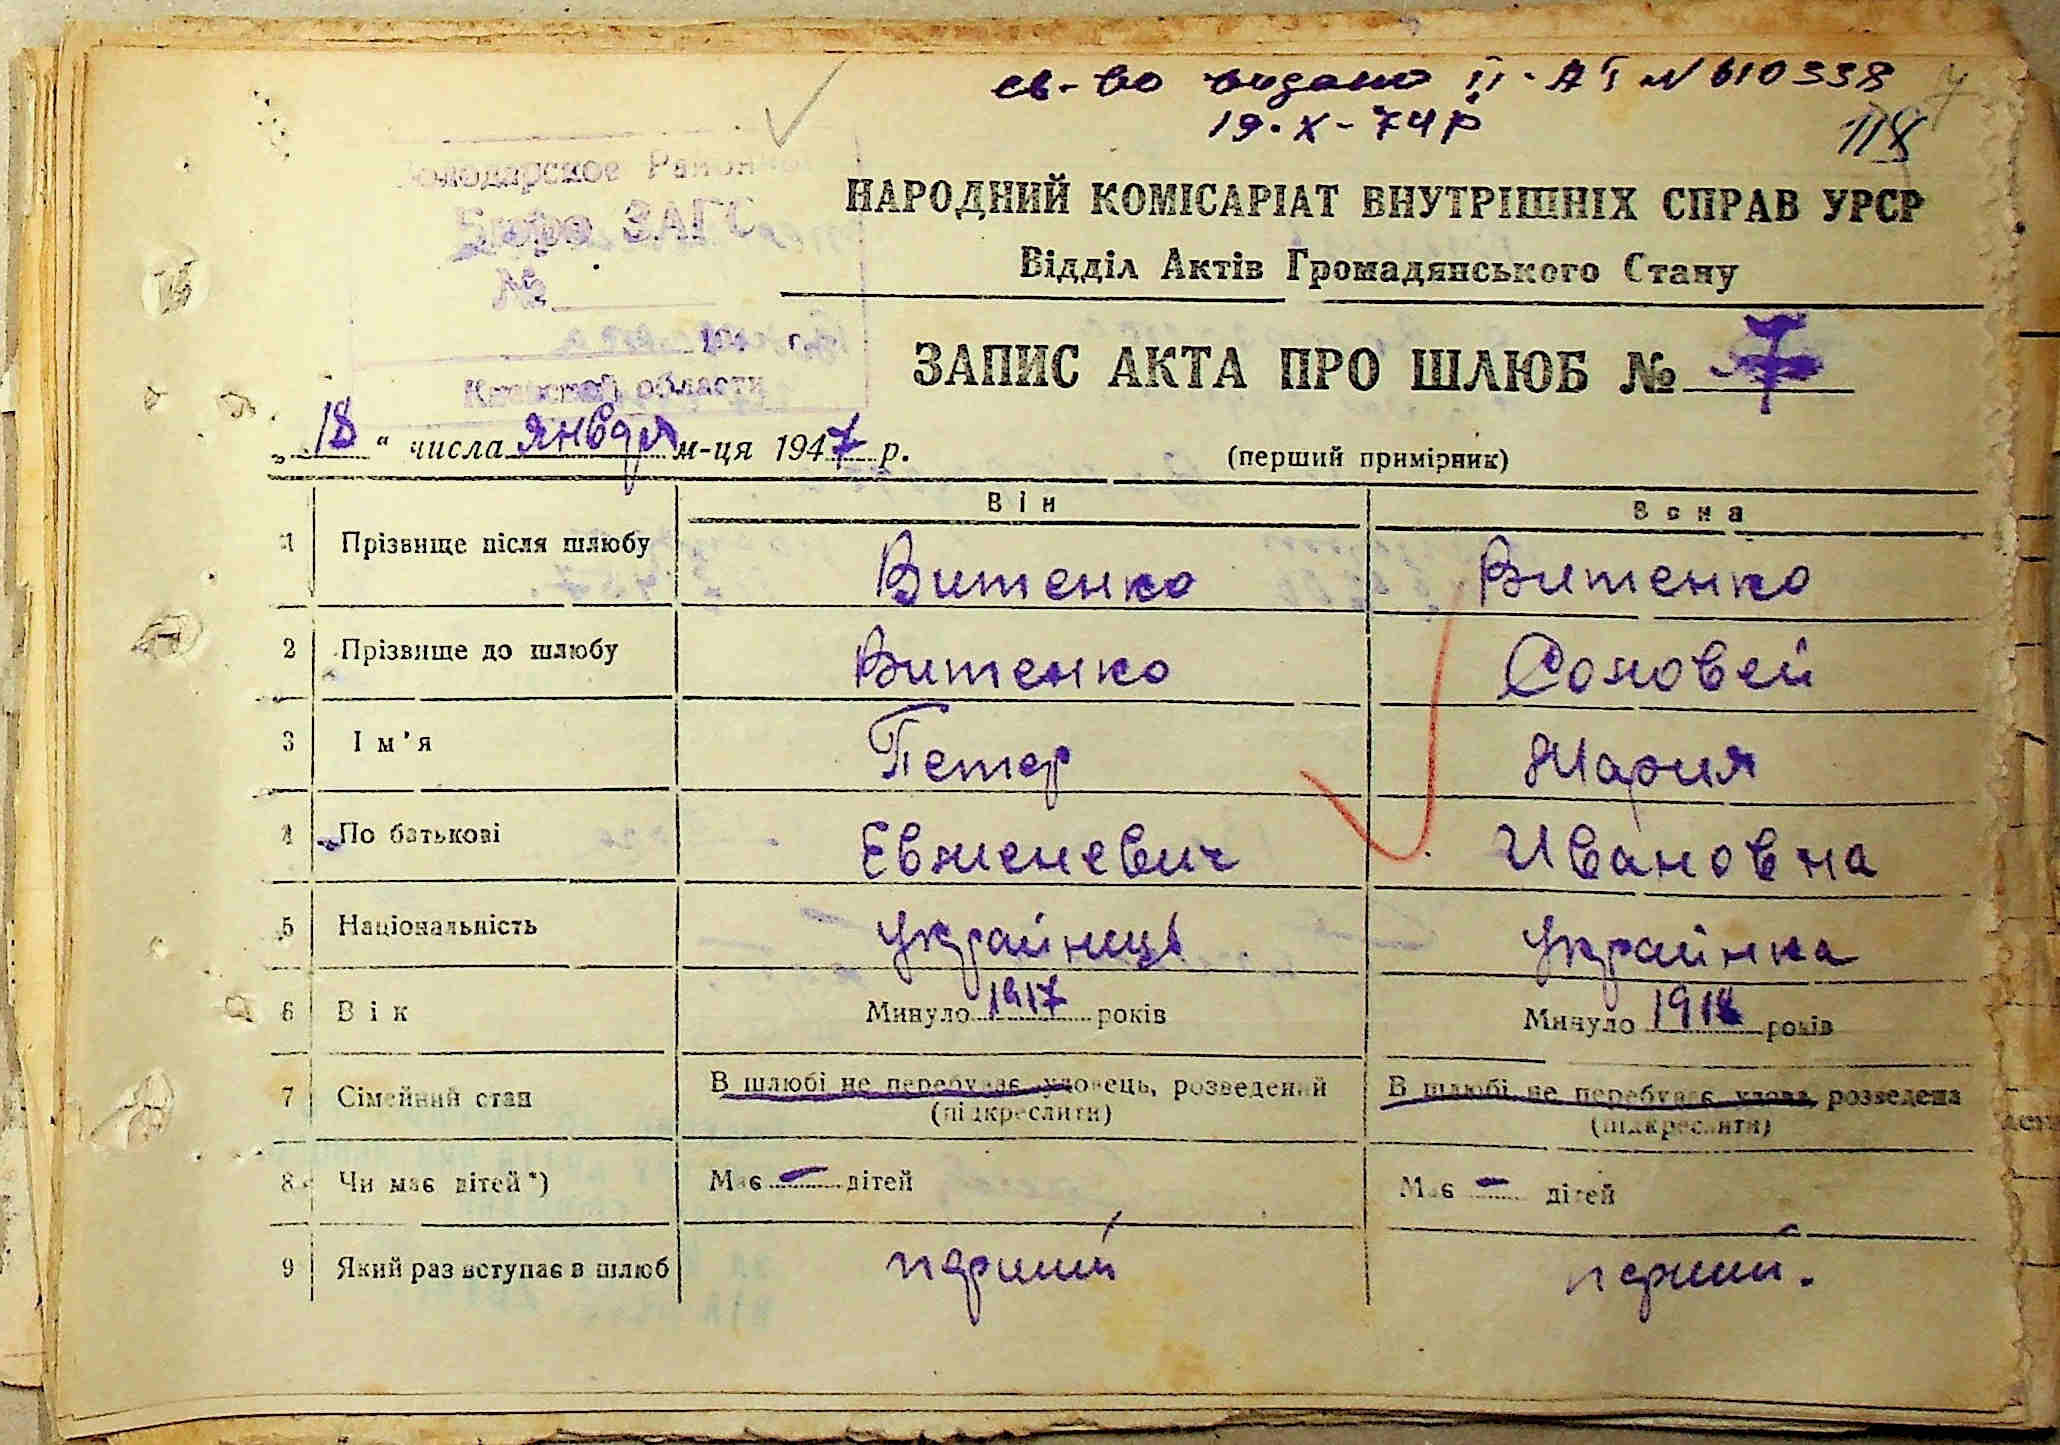 св-во видано II-АІ N 610338
19.X-74р
118
Володарское Районное
Бюро ЗАГС
№
194 г.
Киевской области
НАРОДНИЙ КОМІСАРІАТ ВНУТРІШНІХ СПРАВ УРСР
Відділ Актів Громадянського Стану
ЗАПИС АКТА ПРО ШЛЮБ № 7
„18“ числа января м-ця 1947 р.
(перший примірник)
Він Вона
1 Прізвище після шлюбу Витенко Витенко
2 Прізвище до шлюбу Витенко Соловей
3 Ім'я Петер Мария
4 По батькові Евженевич Ивановна
5 Національність українець українка
6 Вік Минуло 1917 років Минуло 1918 років
7 Сімейний стан В шлюбі не перебував, удовець, розведений В шлюбі не перебував, удова, розведена
(підкреслити) (підкреслити)
8 Чи має дітей*) Має – дітей Має – дітей
9 Який раз вступає в шлюб перший перший.